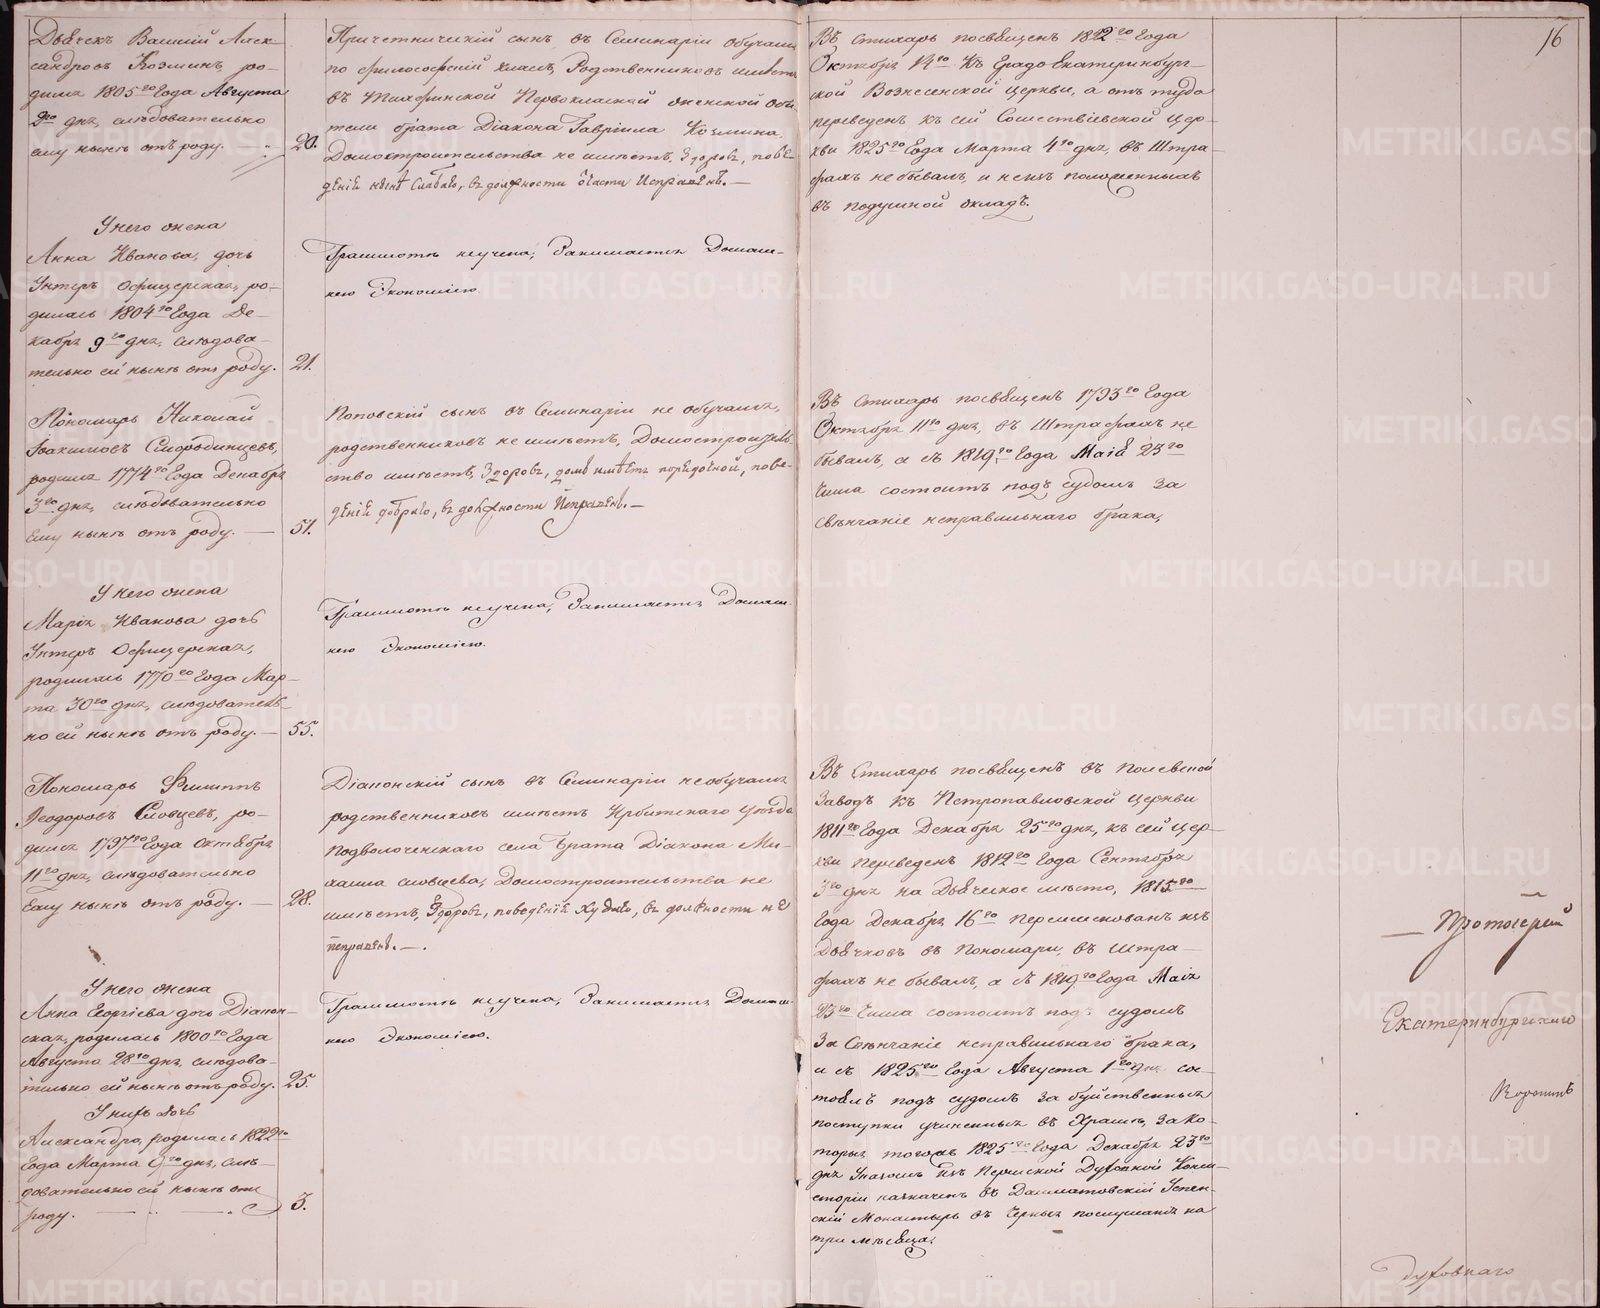 16
Дьячекъ Василій Алек-
сандровъ Козминъ, ро-
дился 1805го Года Августа
9го дня, слѣдовательно
ему нынѣ отъ роду. 20.
Причетническій сынъ въ Семинаріи обучался
по философскій класъ, Родственниковъ имѣетъ
въ Тихфинской Первокласной женской Оби-
тели брата Діакона Гавріила Козмина
Домостроительства не имѣетъ, Здоровъ, пове-
деніе слабаго, въ должности Исправенъ.
Въ стихарь посвященъ 1822го Года
Октября 14го Къ Градо Екатеринбург-
ской Вознесенской церкви, а отъ туда
переведенъ къ сей Сошествіевской цер-
кви 1825го Года Марта 4го дня, въ Штра-
фахъ не бывалъ, и не изъ положенныхъ
въ подушной окладъ.
У него жена
Анна Иванова, дочь
Унтеръ Офицерская, ро-
дилась 1804го Года Де-
кабря 9го дня, слѣдова-
тельно ей нынѣ отъ роду. 21.
Грамматѣ неучена, Занимается Домаш-
нею Экономіею.
Пономарь Николай
Іоакимовъ Смородинцевъ,
родился 1774го Года Декабря
3го дня, слѣдовательно
Ему нынѣ отъ роду. 51.
Поповскій сынъ въ Семинаріи не обучался,
родственниковъ не имѣетъ, Домостроитель-
ство имѣетъ, Здоровъ, домъ имѣетъ порядочной, пове-
деніе добраго, въ должности Исправенъ.
Въ стихарь посвященъ 1793го Года
Октября 11го дня, въ Штрафахъ не
бывалъ, а съ 1819го Года Маія 23го
числа состоитъ подъ судомъ за
свѣнчаніе неправильнаго брака,
У него жена
Марія Иванова дочь
Унтеръ Офицерская,
родилась 1770го Года Мар-
та 30го дня, слѣдователь-
но ей нынѣ отъ роду. 55.
Грамматѣ неучена, Занимается Домаш-
нею Экономіею.
Пономарь Филиппъ
Ѳеодоровъ Словцевъ, ро-
дился 1797го Года Октября
11го дня, слѣдовательно
Ему нынѣ отъ роду. 28.
Діаконскій сынъ въ Семинаріи не обучался
родственниковъ имѣетъ Ирбитскаго уѣзда
Подволоченскаго села брата Діакона Ми-
хаила словцева, Домостроительства не
имѣетъ, Здоровъ, поведеніе худаго, въ должности не
исправенъ.
Въ Стихарь посвященъ въ Полевской
Заводъ къ Петропавловской церкви
1811го Года Декабря 25го дня, къ сей цер-
кви переведенъ 1812го Года Сентября
3го дня на Дьяческое мѣсто, 1815го
Года Декабря 16го переименованъ изъ
Дьячковъ въ Пономари, въ штра-
фахъ не бывалъ, а съ 1819го Года Маія
23го Числа состоитъ подъ судомъ
За Свѣнчаніе неправильнаго брака,
и съ 1825го Года Августа 1го дня со-
тоялъ подъ судомъ за буйственныя
поступки учиненныя въ Храмѣ, за ко-
торыя тогожъ 1825го Года Декабря 23го
дня Указомъ изъ Пермской Духовной Конси-
сторіи назначенъ въ Далматовскій Успен-
скій Монастырь въ черныя послушанія на
три мѣсяца.
У него жена
Анна Георгіева дочь Діакон-
ская, родилась 1800го Года
Августа 28го дня, слѣдова-
тельно ей нынѣ отъ роду. 25.
Грамматѣ неучена, Занимается Домаш-
нею Экономіею.
У нихъ дочь
Александра, родилась 1822го
Года Марта 9го дня, слѣ-
довательно ей нынѣ отъ
роду. 3.
Протоіерей
Екатеринбургскаго
Духовнаго
METRIKI.GASO-URAL.RU